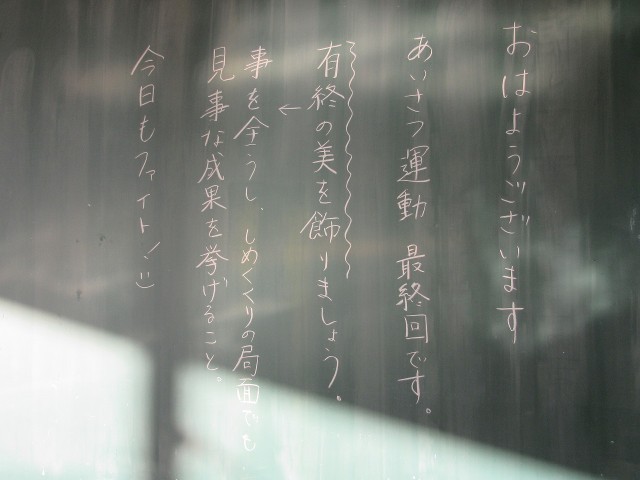 おはようございます
あいさつ運動 最終回です。
有終の美を飾りましょう。
↓
事を全うし、しめくくりの局面でも
見事な成果を挙げること。
今日もファイト!ü